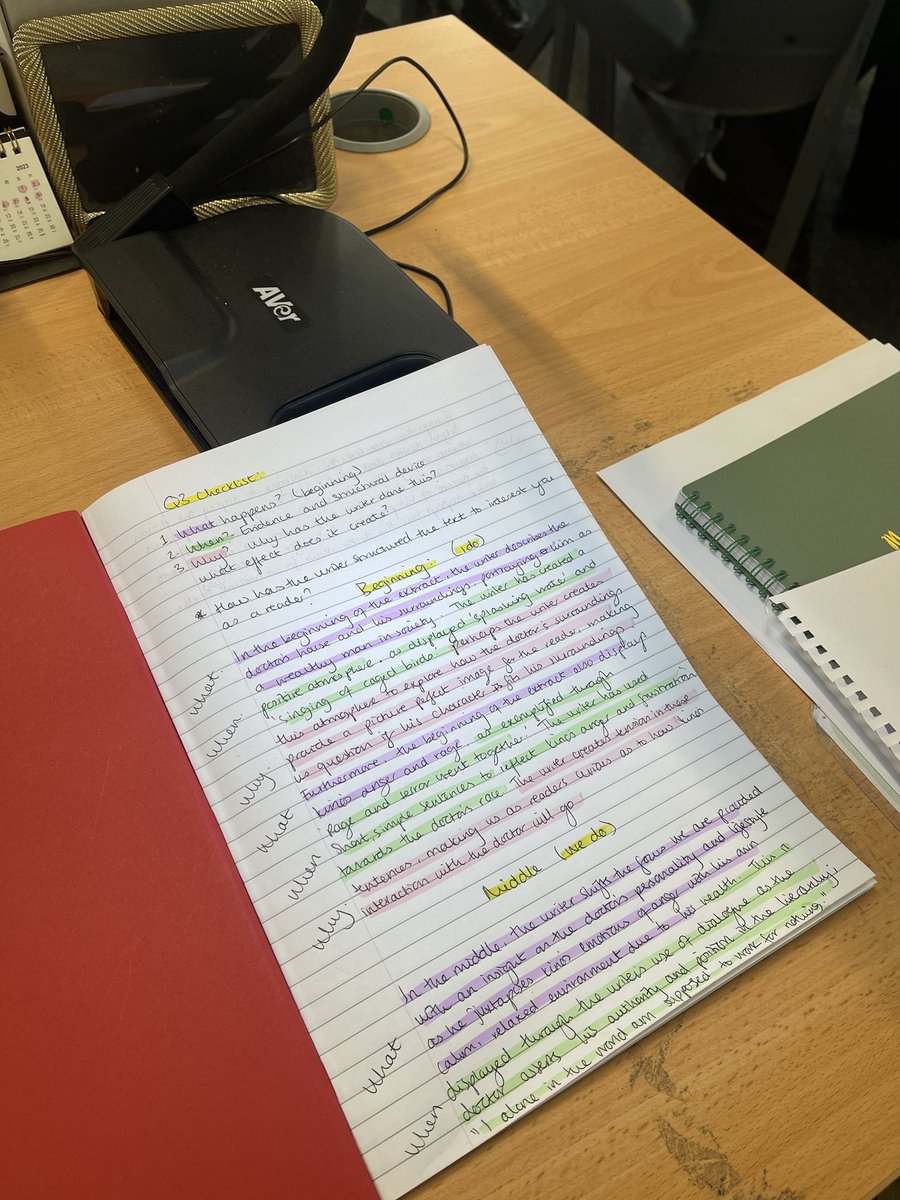 2023
AVer
Q3 Checklist:
1. What happens? (beginning)
2. When? Evidence and structural device
3. Why? Why has the writer done this?
what effect does it create?
* How has the writer structured the text to interest you
as a reader?
Beginning: (I do)
In the beginning of the extract, the writer describes the
doctors house and his surroundings, portraying him as
a wealthy man in society. The writer has created a
positive atmosphere, as displayed 'splashing water' and
'singing of caged birds'. Perhaps the writer creates
this atmosphere to explore how the doctor's surroundings
provide a picture perfect image for the reader, making
us question if his character fits his surroundings.
Furthermore, the beginning of the extract also displays
kino's anger and rage, as exemplified through
'Rage and terror went together'. The writer has used
short, simple sentences to reflect kino's anger and frustration
towards the doctor's race. The writer creates tension in these
sentences, making us as readers curious as to how kino's
interaction with the doctor will go
Middle (we do)
In the middle, the writer shifts the focus we are provided
with an insight on the doctors personality and lifestyle
as he juxtaposes kino's emotions of anger with his own
calm, relaxed environment due to his wealth. This is
displayed through the writers use of dialogue as the
doctor asserts his authority and position in the hierarchy;
"I alone in the world am supposed to work for nothing."
What
When
Why
What
When
Why
What
When